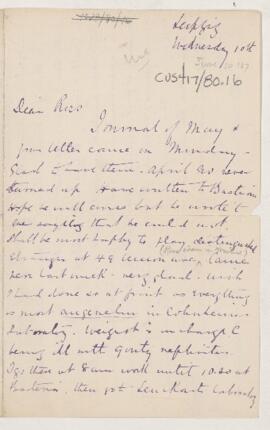 Leipzig
Wednesday 10th
CUS417/80.16
Dear Ross
Journal of May &
your letter came on Monday -
Glad to have them - April no. never
turned up. Have written to Bastian
Hope he will come but he wrote to
me saying that he could not
Shall be most happy to play distinguished
stranger at
here last week - very glad - wish
I had done so at first as everything
is most angenehm in Cohnheim's
laboratory. Weigert is in charge C
being ill with gouty nephritis.
I go there at 8 am work until 10.20 at
Bacteria, then go to Leuckart's Laboratory